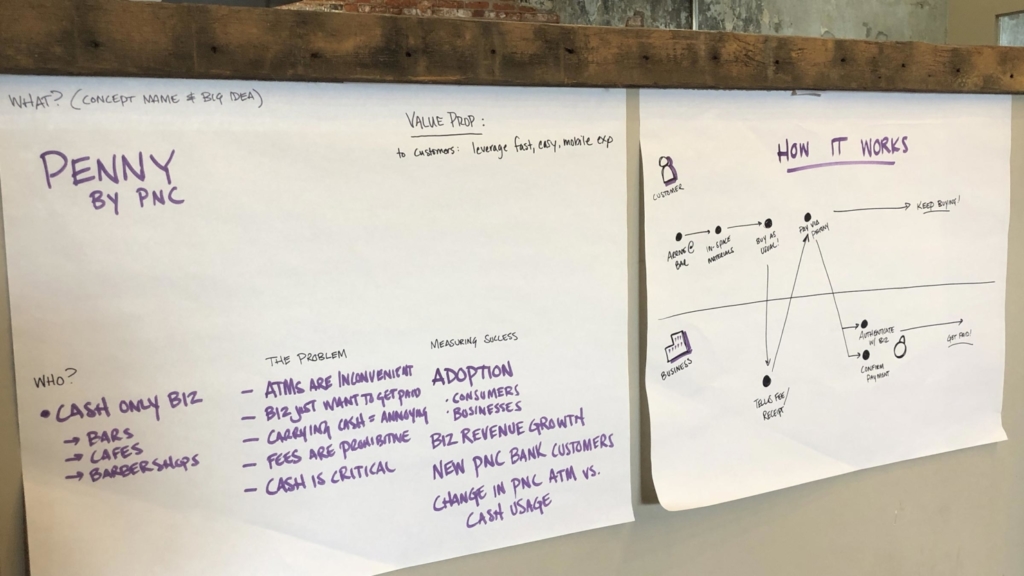 WHAT? (CONCEPT NAME & BIG IDEA)
PENNY
BY PNC
VALUE PROP:
to customers: leverage fast, easy, mobile exp
WHO?
• CASH ONLY BIZ
→ BARS
→ CAFES
→ BARBERSHOPS
THE PROBLEM
– ATMS ARE INCONVENIENT
– BIZ JUST WANT TO GET PAID
– CARRYING CASH = ANNOYING
– FEES ARE PROHIBITIVE
– CASH IS CRITICAL
MEASURING SUCCESS
ADOPTION
· CONSUMERS
· BUSINESSES
BIZ REVENUE GROWTH
NEW PNC BANK CUSTOMERS
CHANGE IN PNC ATM VS.
CASH USAGE
HOW IT WORKS
CUSTOMER
ARRIVE @
BAR
IN-SPACE
MATERIALS
BUY AS
USUAL!
PAY VIA
PENNY
KEEP BUYING!
BUSINESS
TELLS FEE/
RECEIPT
AUTHENTICATE
W/ BIZ
CONFIRM
PAYMENT
GET PAID!